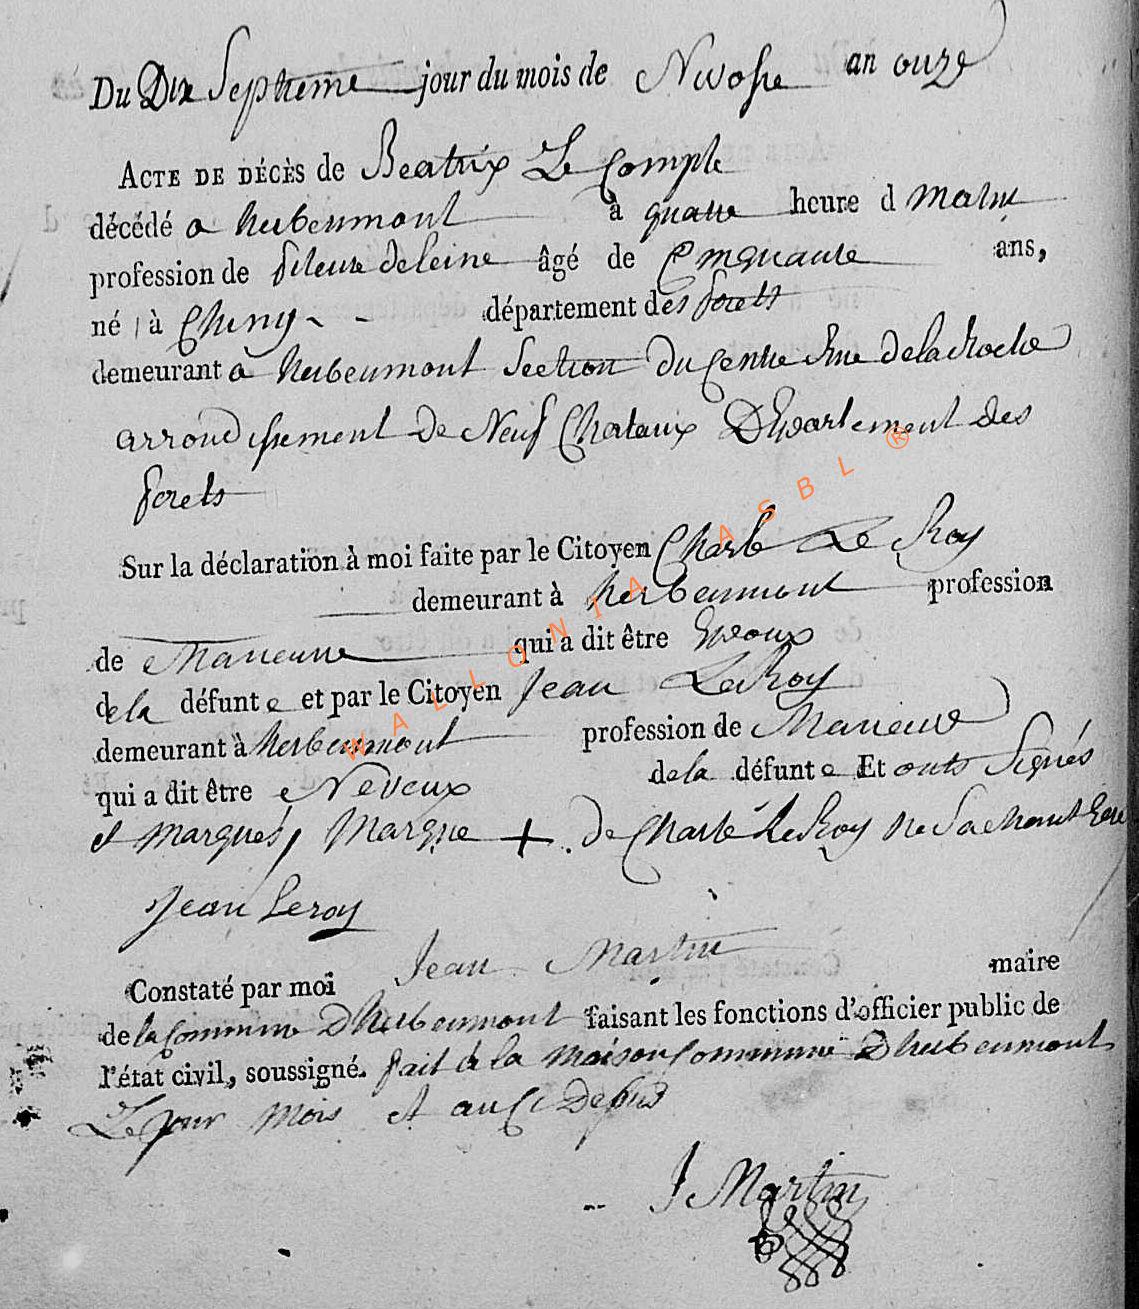 Du Dix Septieme jour du mois de Nivose an onze
ACTE DE DÉCÈS de Beatrix Le Comple
décédé a herbeumont à quatre heure d Matin
profession de fileure deleine âgé de Cinquante ans,
né à Chiny département des forets
demeurant a herbeumont Section du Centre Rue De la Roche
arrondissement de Neuf Chataux Departement des
forets
Sur la déclaration à moi faite par le Citoyen Charle Le Roy
demeurant à herbeumont profession
de qui a dit être Epoux
dela défunte et par le Citoyen Jean LeRoy
demeurant à herbeumont profession de
qui a dit être Neveux dela défunte Et onts Signés
et marqués, Marque + de Charle LeRoy ne Sachant
Jean Leroy
Constaté par moi Jean Martin maire
dela Commune Dherbeumont faisant les fonctions d'officier public de
l'état civil, soussigné. fait à la Maison Commune Dherbeumont
Le jour Mois et an
J Martin
WALLONIA ASBL ®